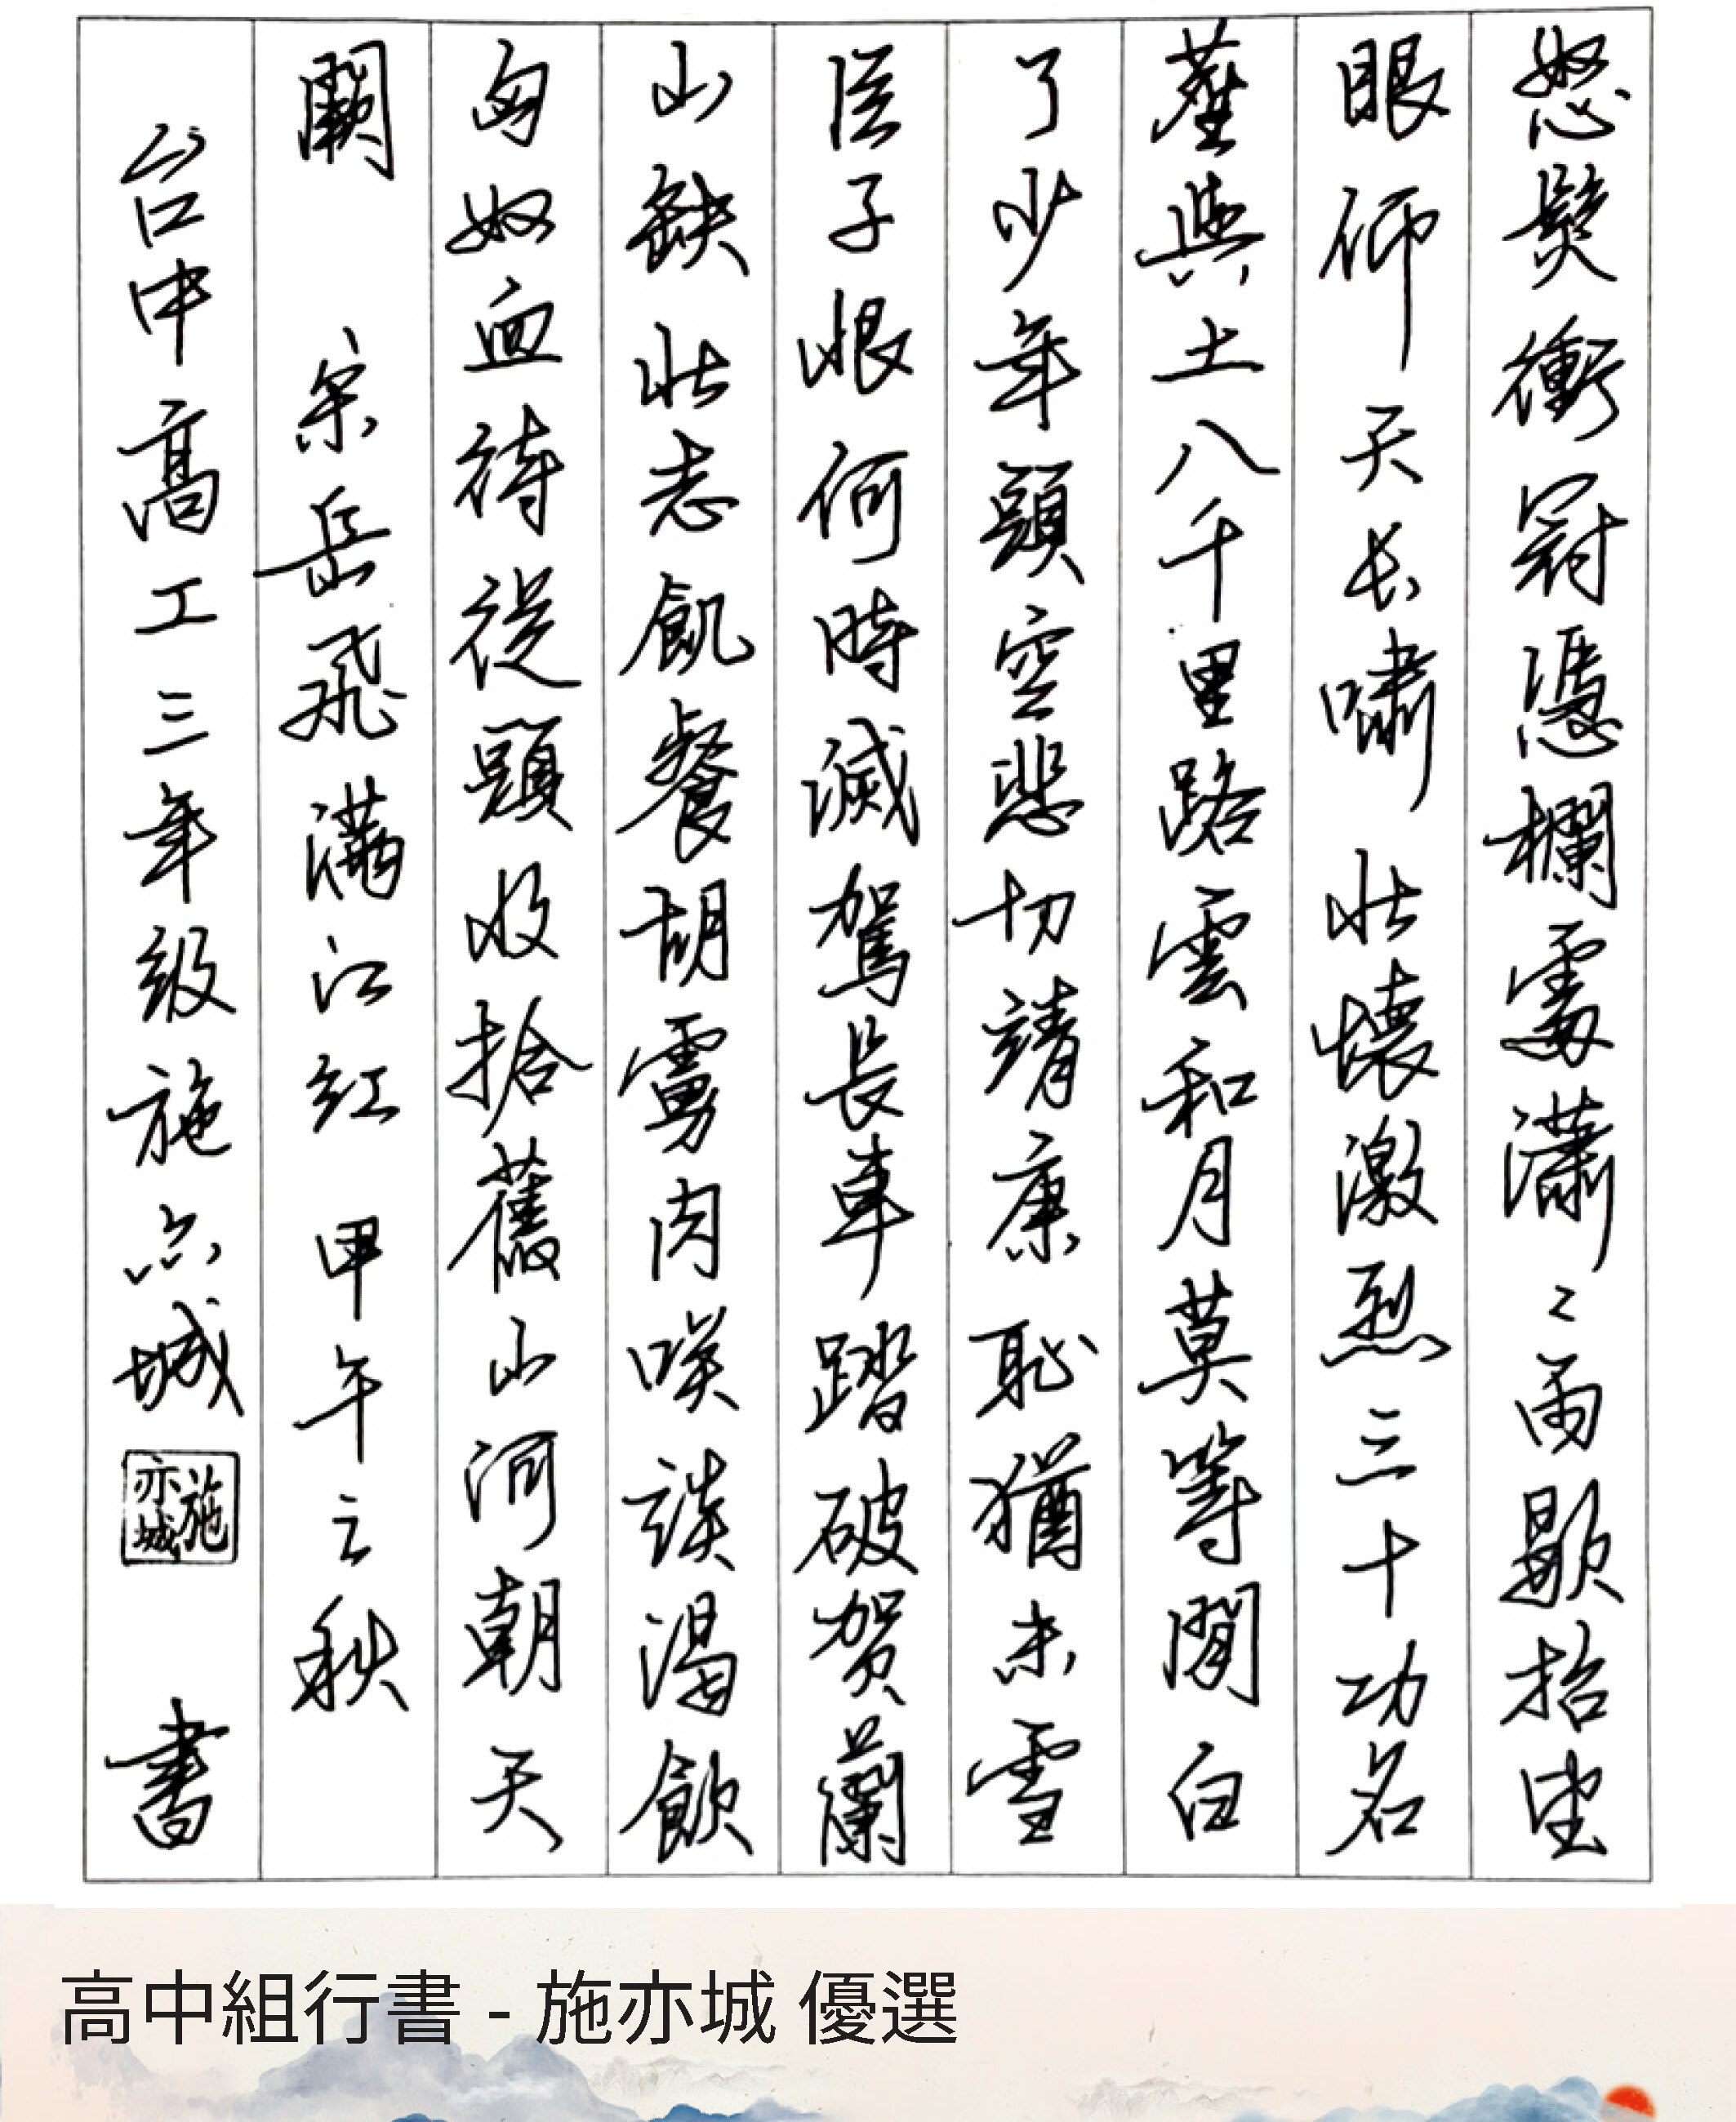 怒髮衝冠憑欄處瀟〻雨歇抬望
眼仰天長嘯壯懷激烈三十功名
塵與土八千里路雲和月莫等閒白
了少年頭空悲切靖康恥猶未雪
臣子恨何時滅駕長車踏破賀蘭
山缺壯志飢餐胡虜肉笑談渴飲
匈奴血待從頭收拾舊山河朝天
闕 宋岳飛滿江紅 甲午之秋
台中高工三年級施亦城 書
施亦城
高中組行書 - 施亦城 優選